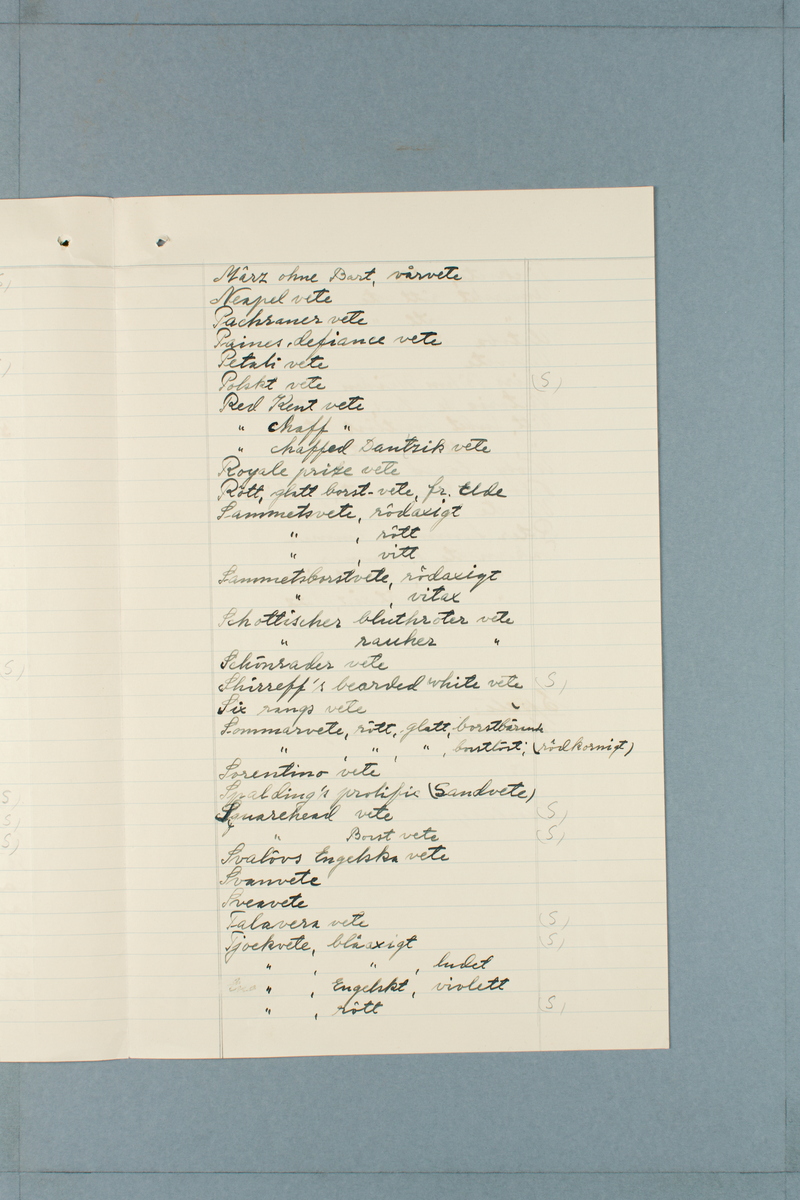 März ohne Bart, vårvete
Neapel vete
Pachraner vete
Paines defiance vete
Petali vete
Polskt vete (S)
Red Kent vete
" Chaff "
" chaffed Dantzik vete
Royale prize vete
Rött, glatt borst-vete, fr. Elde
Sammetsvete, rödaxigt
" , rött
" , vitt
Sammetsborstvete, rödaxigt
" , vitax
Schottischer bluthroter vete
" rauher "
Schönrader vete
Shirreff's bearded white vete (S)
Six rangs vete
Sommarvete, rött, glatt, borstbärande
" , " , " , borstlöst, (rödkornigt)
Sorentino vete
Spalding's prolific (Sandvete)
Squarehead vete (S)
" Borst vete (S)
Svalövs Engelska vete
Svanvete
Sveavete
Talavera vete (S)
Tjockvete, blåaxigt (S)
" , " , ludet
" , Engelskt, violett
" , rött (S)